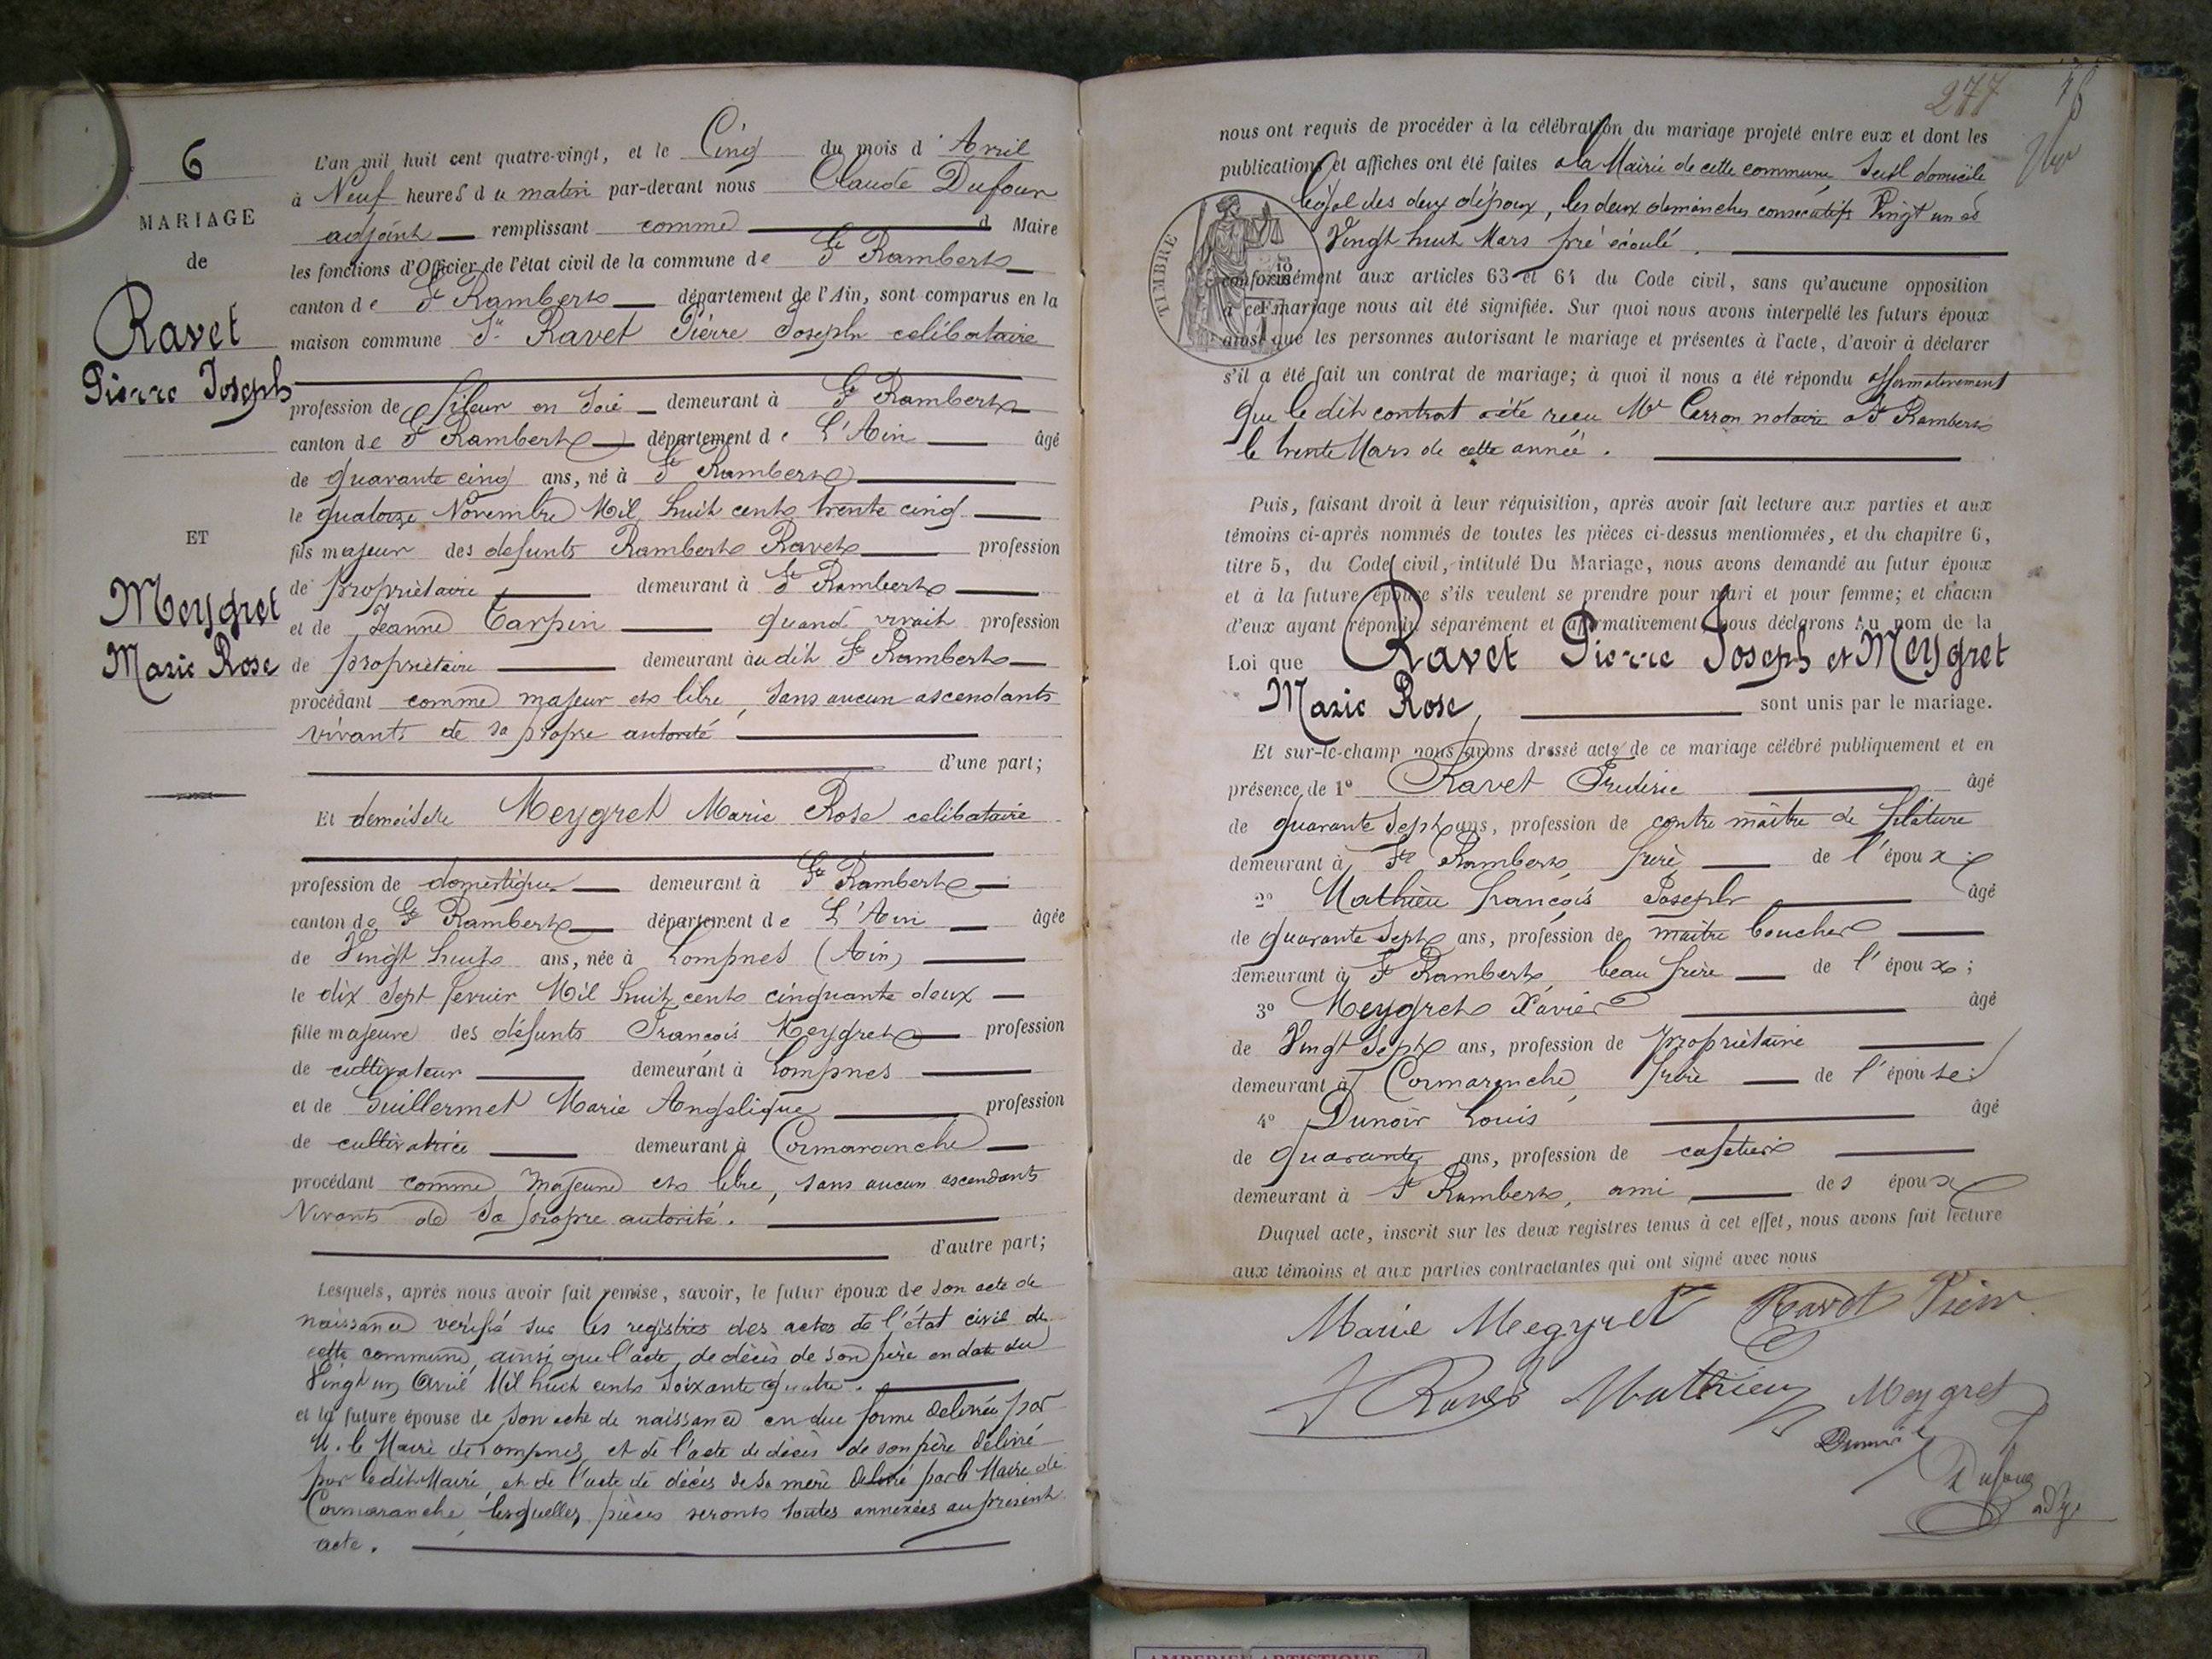 6
MARIAGE
de
Ravet
Pierre Joseph
ET
Meygret
Marie Rose
L'an mil huit cent quatre-vingt, et le Cinq du mois d'Avril
à Neuf heures du matin par-devant nous Claude Dufour
adjoint remplissant comme d Maire
les fonctions d'Officier de l'état civil de la commune de St Rambert
canton de St Rambert département de l'Ain, sont comparus en la
maison commune Sr Ravet Pierre Joseph celibataire
profession de fileur en soie demeurant à St Rambert
canton de St Rambert département de L'Ain âgé
de quarante cinq ans, né à St Rambert
le quatorze Novembre Mil huit cent trente cinq
fils majeur des defunts Rambert Ravet profession
de propriètaire demeurant à St Rambert
et de Jeanne Tarpin quand vivait profession
de propriètaire demeurant audit St Rambert
procédant comme majeur et libre, sans aucun ascendants
vivants de sa propre autorité
d'une part;
Et demoiselle Meygret Marie Rose celibataire
profession de domestique demeurant à St Rambert
canton de St Rambert département de L'Ain âgée
de Vingt huit ans, née à Lompnes (Ain)
le dix sept fevrier Mil huit cent cinquante deux
fille majeure des défunts François Meygret profession
de cultivateur demeurant à Lompnes
et de Guillermet Marie Angelique profession
de cultivatrice demeurant à Cormaranche
procédant comme majeure et libre, sans aucun ascendants
Vivants de sa propre autorité.
d'autre part;
Lesquels, après nous avoir fait remise, savoir, le futur époux de son acte de
naissance vérifié sur les registres des actes de l'état civil de
cette commune, ainsi que l'acte de décès de son père en date du
Vingt un Avril Mil huit cents soixante quatre.
et la future épouse de son acte de naissance en due forme délivrée par
M. le Maire de Lompnes, et de l'acte de décès de son père délivré
par ledit Maire, et de l'acte de décès de sa mère délivré par le Maire de
Cormaranche, lesquelles pièces seront toutes annexées au présent
acte.
277
nous ont requis de procéder à la célébration du mariage projeté entre eux et dont les
publications et affiches ont été faites a la Mairie de cette commune seul domicile
légal des deux époux, les deux dimanches consécutifs Vingt un et
Vingt huit Mars pré écoulé.
TIMBRE
conformément aux articles 63 et 64 du Code civil, sans qu'aucune opposition
à ce mariage nous ait été signifiée. Sur quoi nous avons interpellé les futurs époux
ainsi que les personnes autorisant le mariage et présentes à l'acte, d'avoir à déclarer
s'il a été fait un contrat de mariage; à quoi il nous a été répondu affirmativement
que le dit contrat a été recu Me Cerron notaire a St Rambert
le trente Mars de cette année.
Puis, faisant droit à leur réquisition, après avoir fait lecture aux parties et aux
témoins ci-après nommés de toutes les pièces ci-dessus mentionnées, et du chapitre 6,
titre 5, du Code civil, intitulé Du Mariage, nous avons demandé au futur époux
et à la future épouse s'ils veulent se prendre pour mari et pour femme; et chacun
d'eux ayant répondu séparément et affirmativement nous déclarons Au nom de la
Loi que Ravet Pierre Joseph et Meygret
Marie Rose, sont unis par le mariage.
Et sur-le-champ nous avons dressé acte de ce mariage célébré publiquement et en
présence de 1° Ravet Fréderic âgé
de quarante sept ans, profession de contre maître de filature
demeurant à St Rambert, frère de l'époux;
2° Mathieu françois Joseph âgé
de quarante sept ans, profession de maître boucher
demeurant à St Rambert, beau frère de l'époux;
3° Meygret Xavier âgé
de Vingt sept ans, profession de propriètaire
demeurant à Cormaranche, frère de l'épouse;
4° Dunoir Louis âgé
de quarante ans, profession de cafetier
demeurant à St Rambert, ami des époux
Duquel acte, inscrit sur les deux registres tenus à cet effet, nous avons fait lecture
aux témoins et aux parties contractantes qui ont signé avec nous
Marie Meygret Ravet Pierre
Ravet Mathieu Meygret
Dunoir
Dufour
adjt